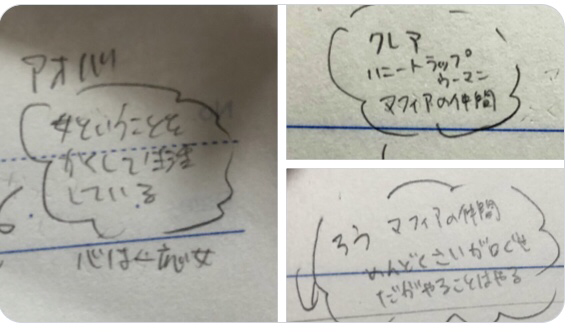 アオバ
女ということを
かくして生活
している
クレア
ハニートラップ
ウーマン
マフィアの仲間
ろう マフィアの仲間
めんどくさいが口ぐせ
だがやることはやる